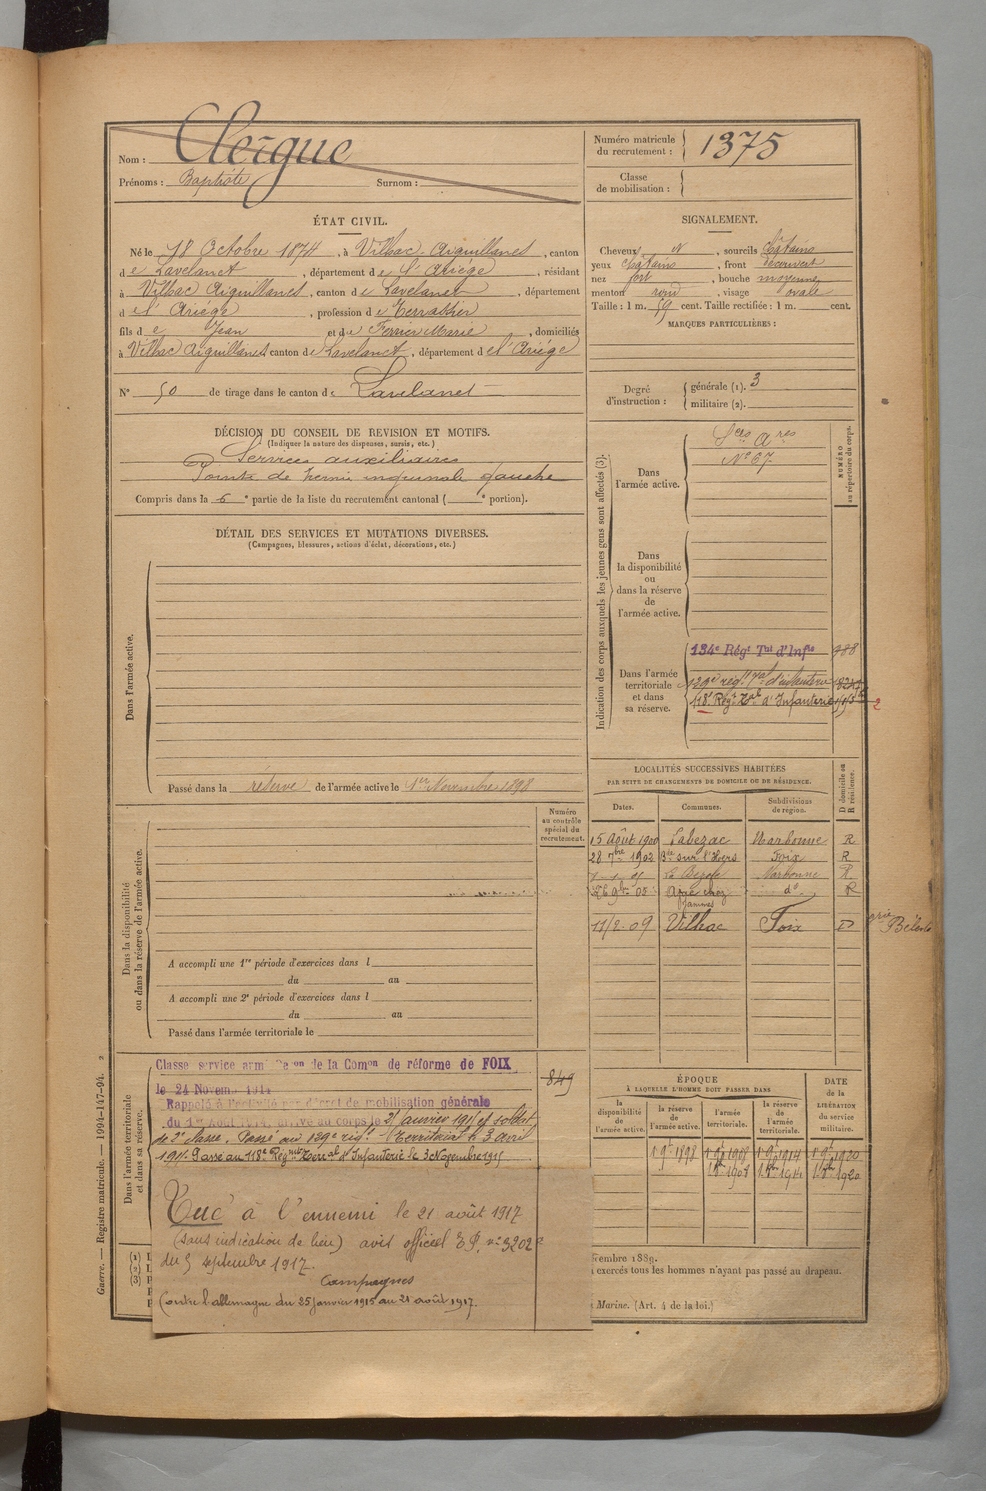 Nom : Clergue
Prénoms : Baptiste Surnom :
Numéro matricule du recrutement : 1375
Classe de mobilisation :
ÉTAT CIVIL.
Né le 18 Octobre 1874, à Vilhac-Aiguillanes, canton
de Lavelanet, département de l'Ariège, résidant
à Vilhac Aiguillanes, canton de Lavelanet, département
d e l'Ariège, profession de Terrassier
fils de Jean et de Ferrier Marie, domiciliés
à Vilhac Aiguillanes canton de Lavelanet, département de l'Ariège
N° 50 de tirage dans le canton de Lavelanet
SIGNALEMENT.
Cheveux N, sourcils châtains
yeux châtains, front découvert
nez fort, bouche moyenne
menton rond, visage ovale
Taille : 1 m. 59 cent. Taille rectifiée : 1 m. cent.
MARQUES PARTICULIÈRES :
Degré d'instruction : générale (1). 3
militaire (2).
DÉCISION DU CONSEIL DE REVISION ET MOTIFS.
(Indiquer la nature des dispenses, sursis, etc.)
Services auxiliaires
Pointe de hernie inguinale gauche
Compris dans la 6e partie de la liste du recrutement cantonal ( e portion).
DÉTAIL DES SERVICES ET MUTATIONS DIVERSES.
(Campagnes, blessures, actions d'éclat, décorations, etc.)
Dans l'armée active.
Passé dans la réserve de l'armée active le 1er Novembre 1898
Indication des corps auxquels les jeunes gens sont affectés (3).
NUMÉRO au répertoire du corps.
Dans l'armée active.
Sces Ares
N° 67
Dans la disponibilité ou dans la réserve de l'armée active.
Dans l'armée territoriale et dans sa réserve.
134e Régt Tal d'Infie 988
129e régt Tal d'infanterie
118e Régt Tal d'Infanterie
2
LOCALITÉS SUCCESSIVES HABITÉES
PAR SUITE DE CHANGEMENTS DE DOMICILE OU DE RÉSIDENCE.
Dates. Communes. Subdivisions de région. D domicile ou R résidence.
15 Août 1900 Labezac Narbonne R
28 7bre 1902 Bde sur l'Hers Foix R
La Bezole Narbonne R
26 9bre 05 do R
11/2-09 Vilhac Foix D
Dans la disponibilité ou dans la réserve de l'armée active.
Numéro au contrôle spécial du recrutement.
A accompli une 1re période d'exercices dans l
du au
A accompli une 2e période d'exercices dans l
du au
Passé dans l'armée territoriale le
Dans l'armée territoriale et dans sa réserve.
849
Classé service armé Déon de la Comon de réforme de FOIX
le 24 Novem. 1914
Rappelé à l'activité par décret de mobilisation générale
du 1er Août 1914, arrivé au corps le 25 janvier 1915 et soldat
de 2e classe. Passé au 129e régt Territorial le 3 avril
1915. Passé au 118e Régiment Terral d'Infanterie le 3 Novembre 1915
Tué à l'ennemi le 21 août 1917
(sans indication de lieu) avis officiel E.P. n° 3202
du 5 septembre 1917.
Campagnes
Contre l'allemagne du 25 janvier 1915 au 21 août 1917.
ÉPOQUE
À LAQUELLE L'HOMME DOIT PASSER DANS
la disponibilité de l'armée active. la réserve de l'armée active. l'armée territoriale. la réserve de l'armée territoriale.
DATE de la LIBÉRATION du service militaire.
1 9bre 1898 1 9bre 1908 1 9bre 1914 1 9bre 1920
1 8bre 1908 1 8bre 1914 1 8bre 1920
vembre 1889.
exercés tous les hommes n'ayant pas passé au drapeau.
Marine. (Art. 4 de la loi.)
(1)
(2)
(3)
Guerre. — Registre matricule. — 1994-147-94. 2